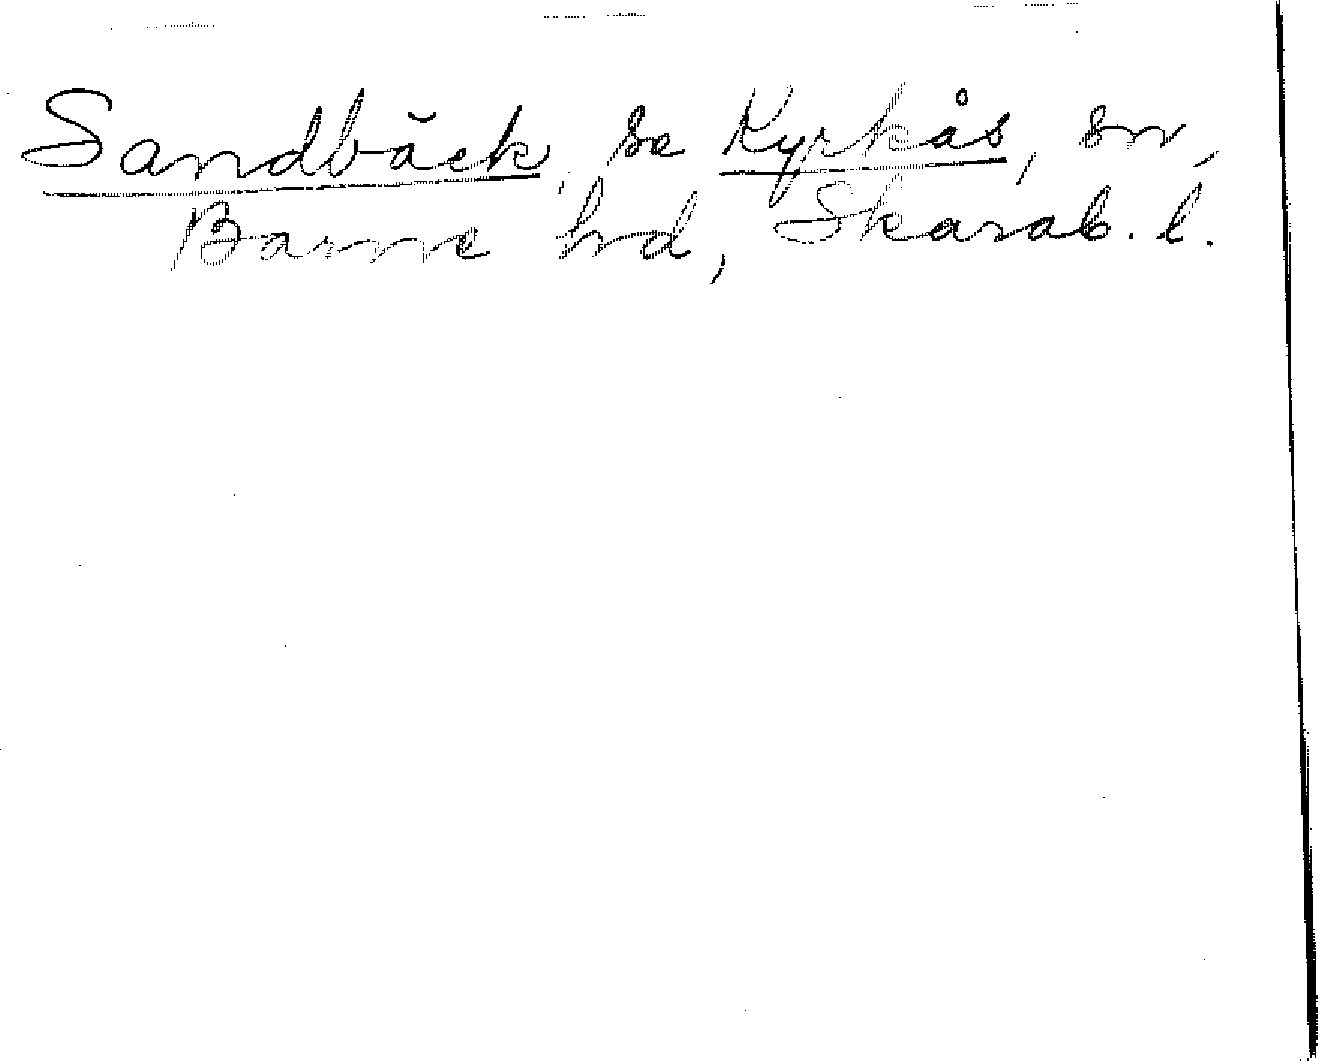 Sandbäck, se Kyrkås, sn,
Barne hd, Skarab. l.